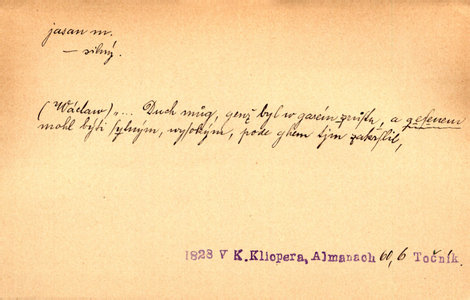 jasan m.
— silný.
(Wáclaw) „... Duch můg, genž byl w gasém zrůstu, a gesenem
mohl býti sylným, wysokým, pode dnem tjm zakrslil,
1828 V K. Kliopera, Almanach 60, 6 Točník.